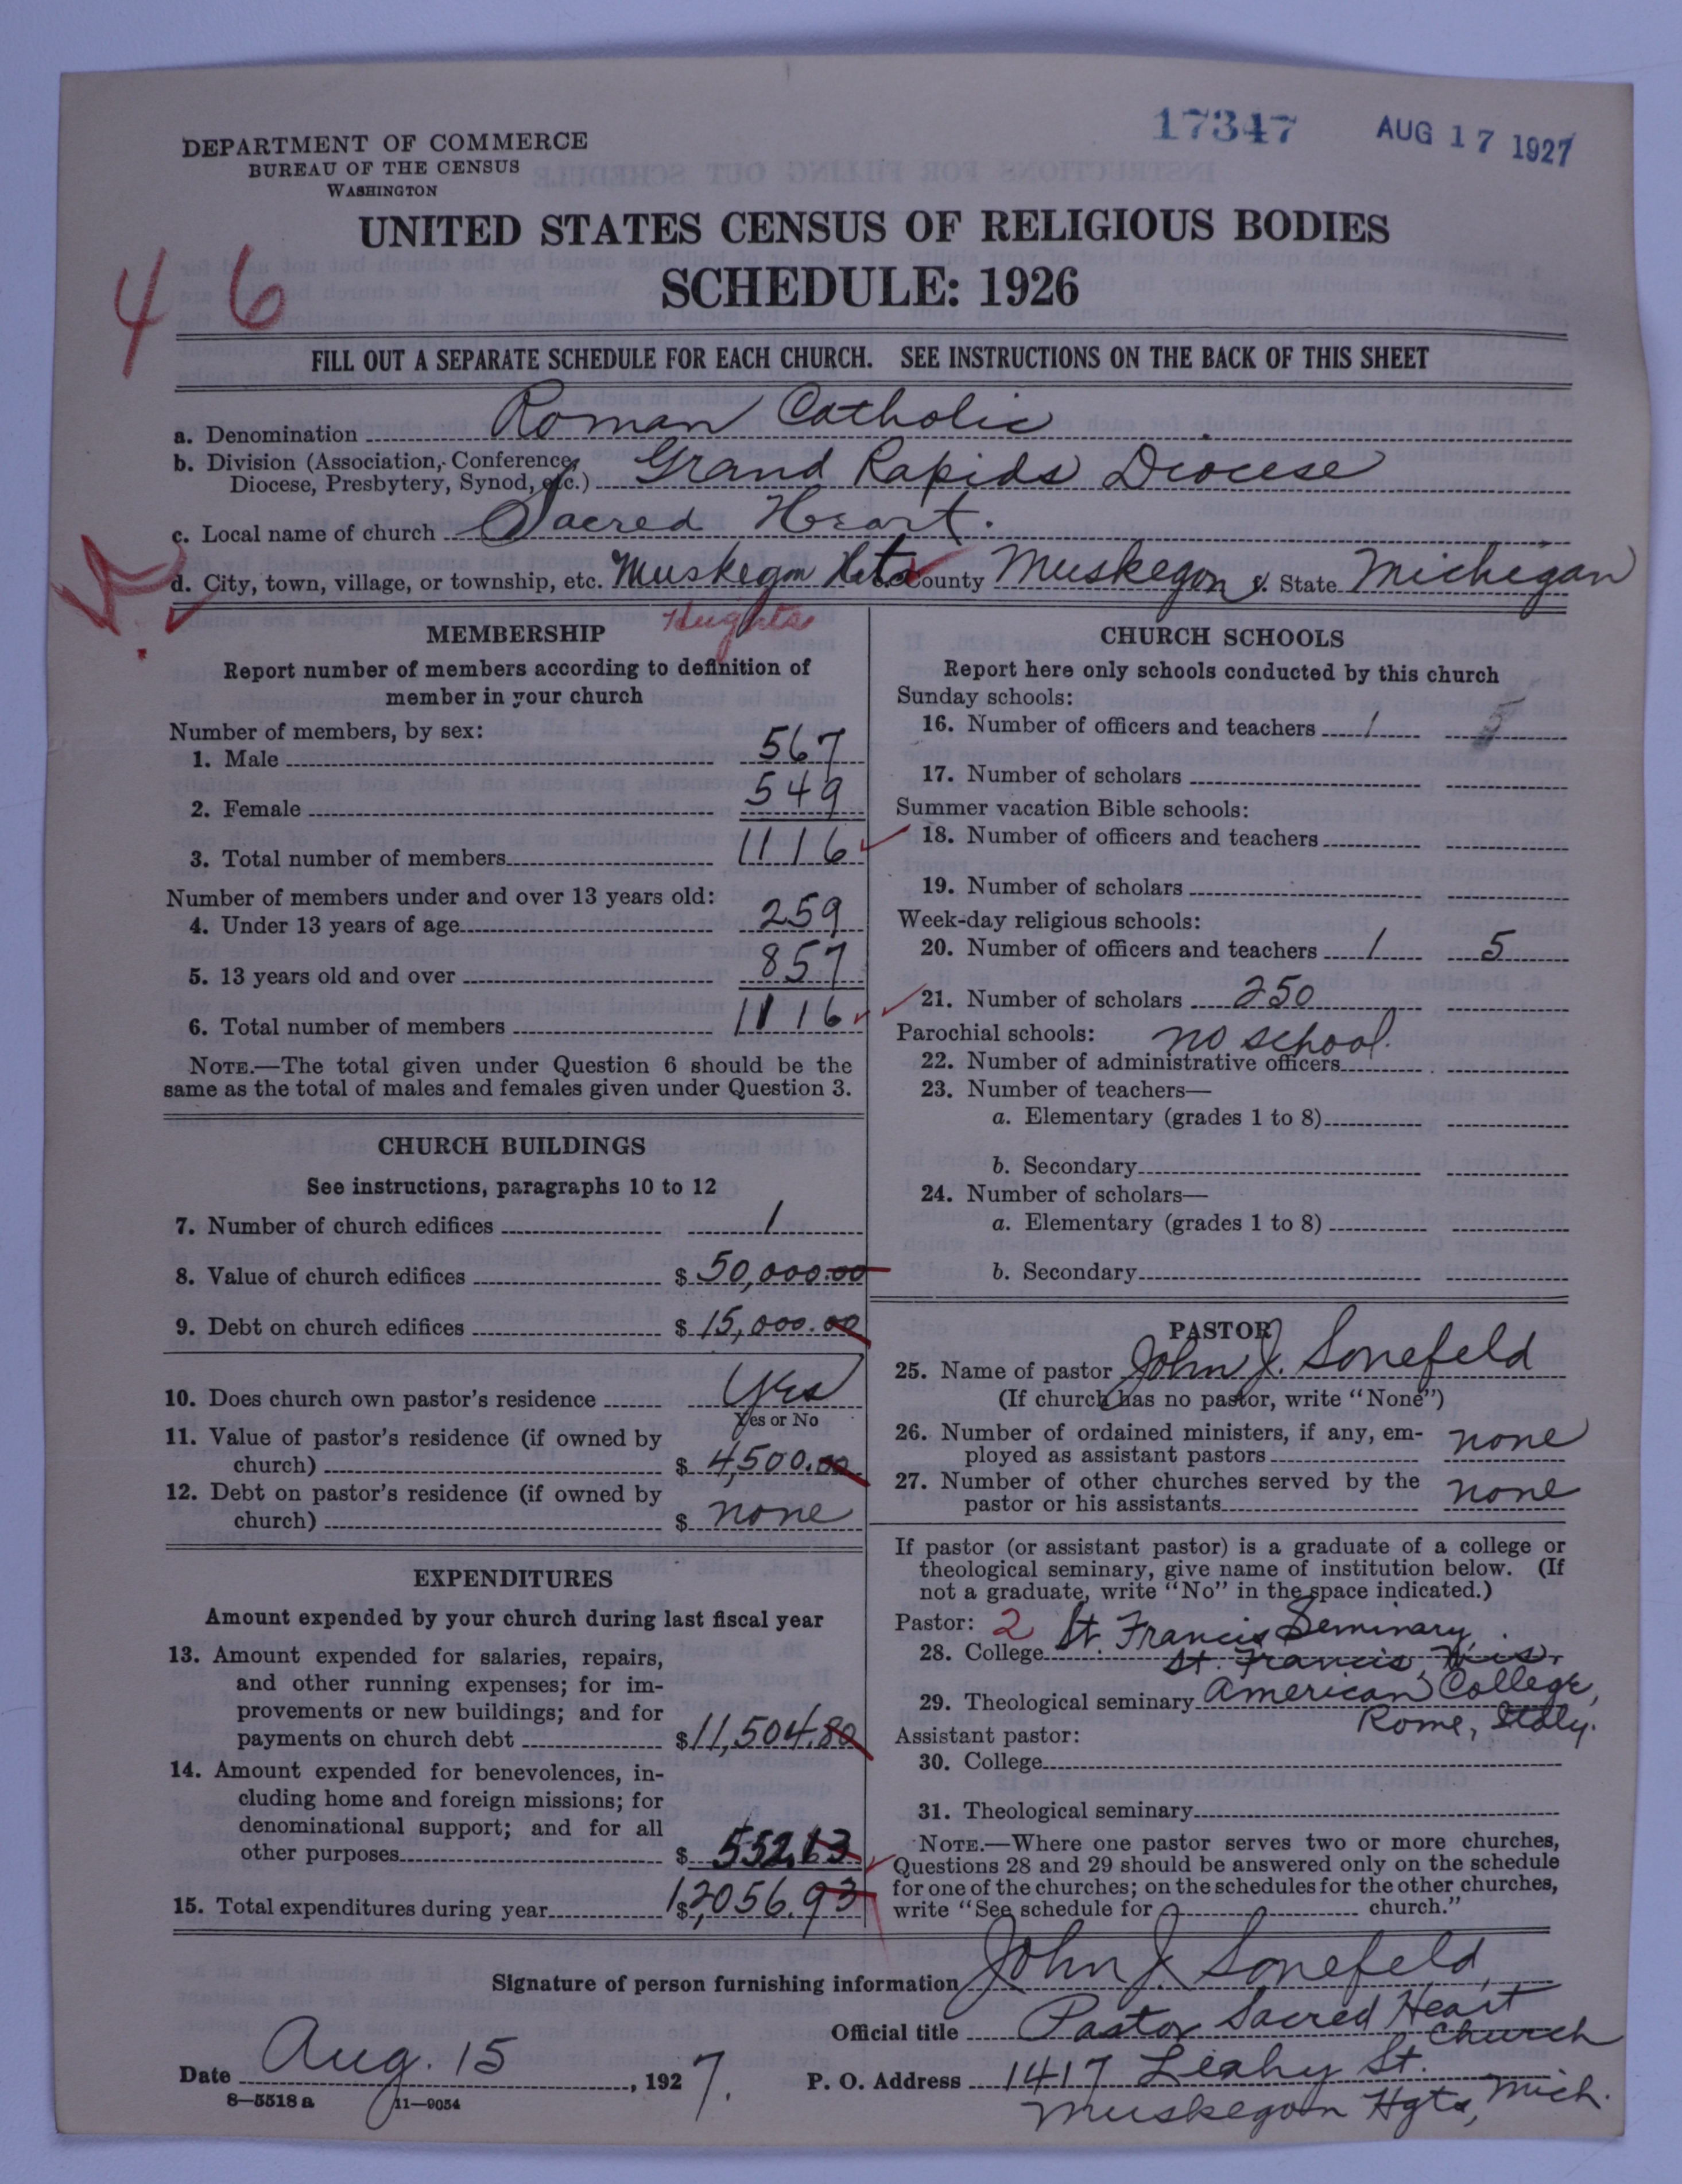 17347 AUG 17 1927
DEPARTMENT OF COMMERCE
BUREAU OF THE CENSUS
WASHINGTON
UNITED STATES CENSUS OF RELIGIOUS BODIES
SCHEDULE: 1926
46
FILL OUT A SEPARATE SCHEDULE FOR EACH CHURCH. SEE INSTRUCTIONS ON THE BACK OF THIS SHEET
a. Denomination Roman Catholic
b. Division (Association, Conference,
Diocese, Presbytery, Synod, etc.) Grand Rapids Diocese
c. Local name of church Sacred Heart.
d. City, town, village, or township, etc. Muskegon Hgts e. County Muskegon f. State Michigan
Heights
MEMBERSHIP
Report number of members according to definition of
member in your church
Number of members, by sex:
1. Male 567
2. Female 549
3. Total number of members 1116
Number of members under and over 13 years old:
4. Under 13 years of age 259
5. 13 years old and over 857
6. Total number of members 1116
NOTE.—The total given under Question 6 should be the
same as the total of males and females given under Question 3.
CHURCH BUILDINGS
See instructions, paragraphs 10 to 12
7. Number of church edifices 1
8. Value of church edifices $ 50,000.00
9. Debt on church edifices $ 15,000.00
10. Does church own pastor's residence Yes
Yes or No
11. Value of pastor's residence (if owned by
church) $ 4,500.00
12. Debt on pastor's residence (if owned by
church) $ none
EXPENDITURES
Amount expended by your church during last fiscal year
13. Amount expended for salaries, repairs,
and other running expenses; for im-
provements or new buildings; and for
payments on church debt $ 11,504.80
14. Amount expended for benevolences, in-
cluding home and foreign missions; for
denominational support; and for all
other purposes $ 552.13
15. Total expenditures during year $ 12,056.93
CHURCH SCHOOLS
Report here only schools conducted by this church
Sunday schools:
16. Number of officers and teachers 1
17. Number of scholars
Summer vacation Bible schools:
18. Number of officers and teachers
19. Number of scholars
Week-day religious schools:
20. Number of officers and teachers 1 5
21. Number of scholars 250
Parochial schools: no school.
22. Number of administrative officers
23. Number of teachers—
a. Elementary (grades 1 to 8)
b. Secondary
24. Number of scholars—
a. Elementary (grades 1 to 8)
b. Secondary
PASTOR
25. Name of pastor John J. Sonefeld
(If church has no pastor, write "None")
26. Number of ordained ministers, if any, em-
ployed as assistant pastors none
27. Number of other churches served by the
pastor or his assistants none
If pastor (or assistant pastor) is a graduate of a college or
theological seminary, give name of institution below. (If
not a graduate, write "No" in the space indicated.)
Pastor: 2 St. Francis Seminary,
28. College St. Francis, Wis.
29. Theological seminary American College,
Rome, Italy.
Assistant pastor:
30. College
31. Theological seminary
NOTE.—Where one pastor serves two or more churches,
Questions 28 and 29 should be answered only on the schedule
for one of the churches; on the schedules for the other churches,
write "See schedule for church."
Signature of person furnishing information John J. Sonefeld,
Official title Pastor Sacred Heart
Church
Date Aug. 15, 1927. P. O. Address 1417 Leahy St.
Muskegon Hgts, Mich.
8—5518 a 11—9054